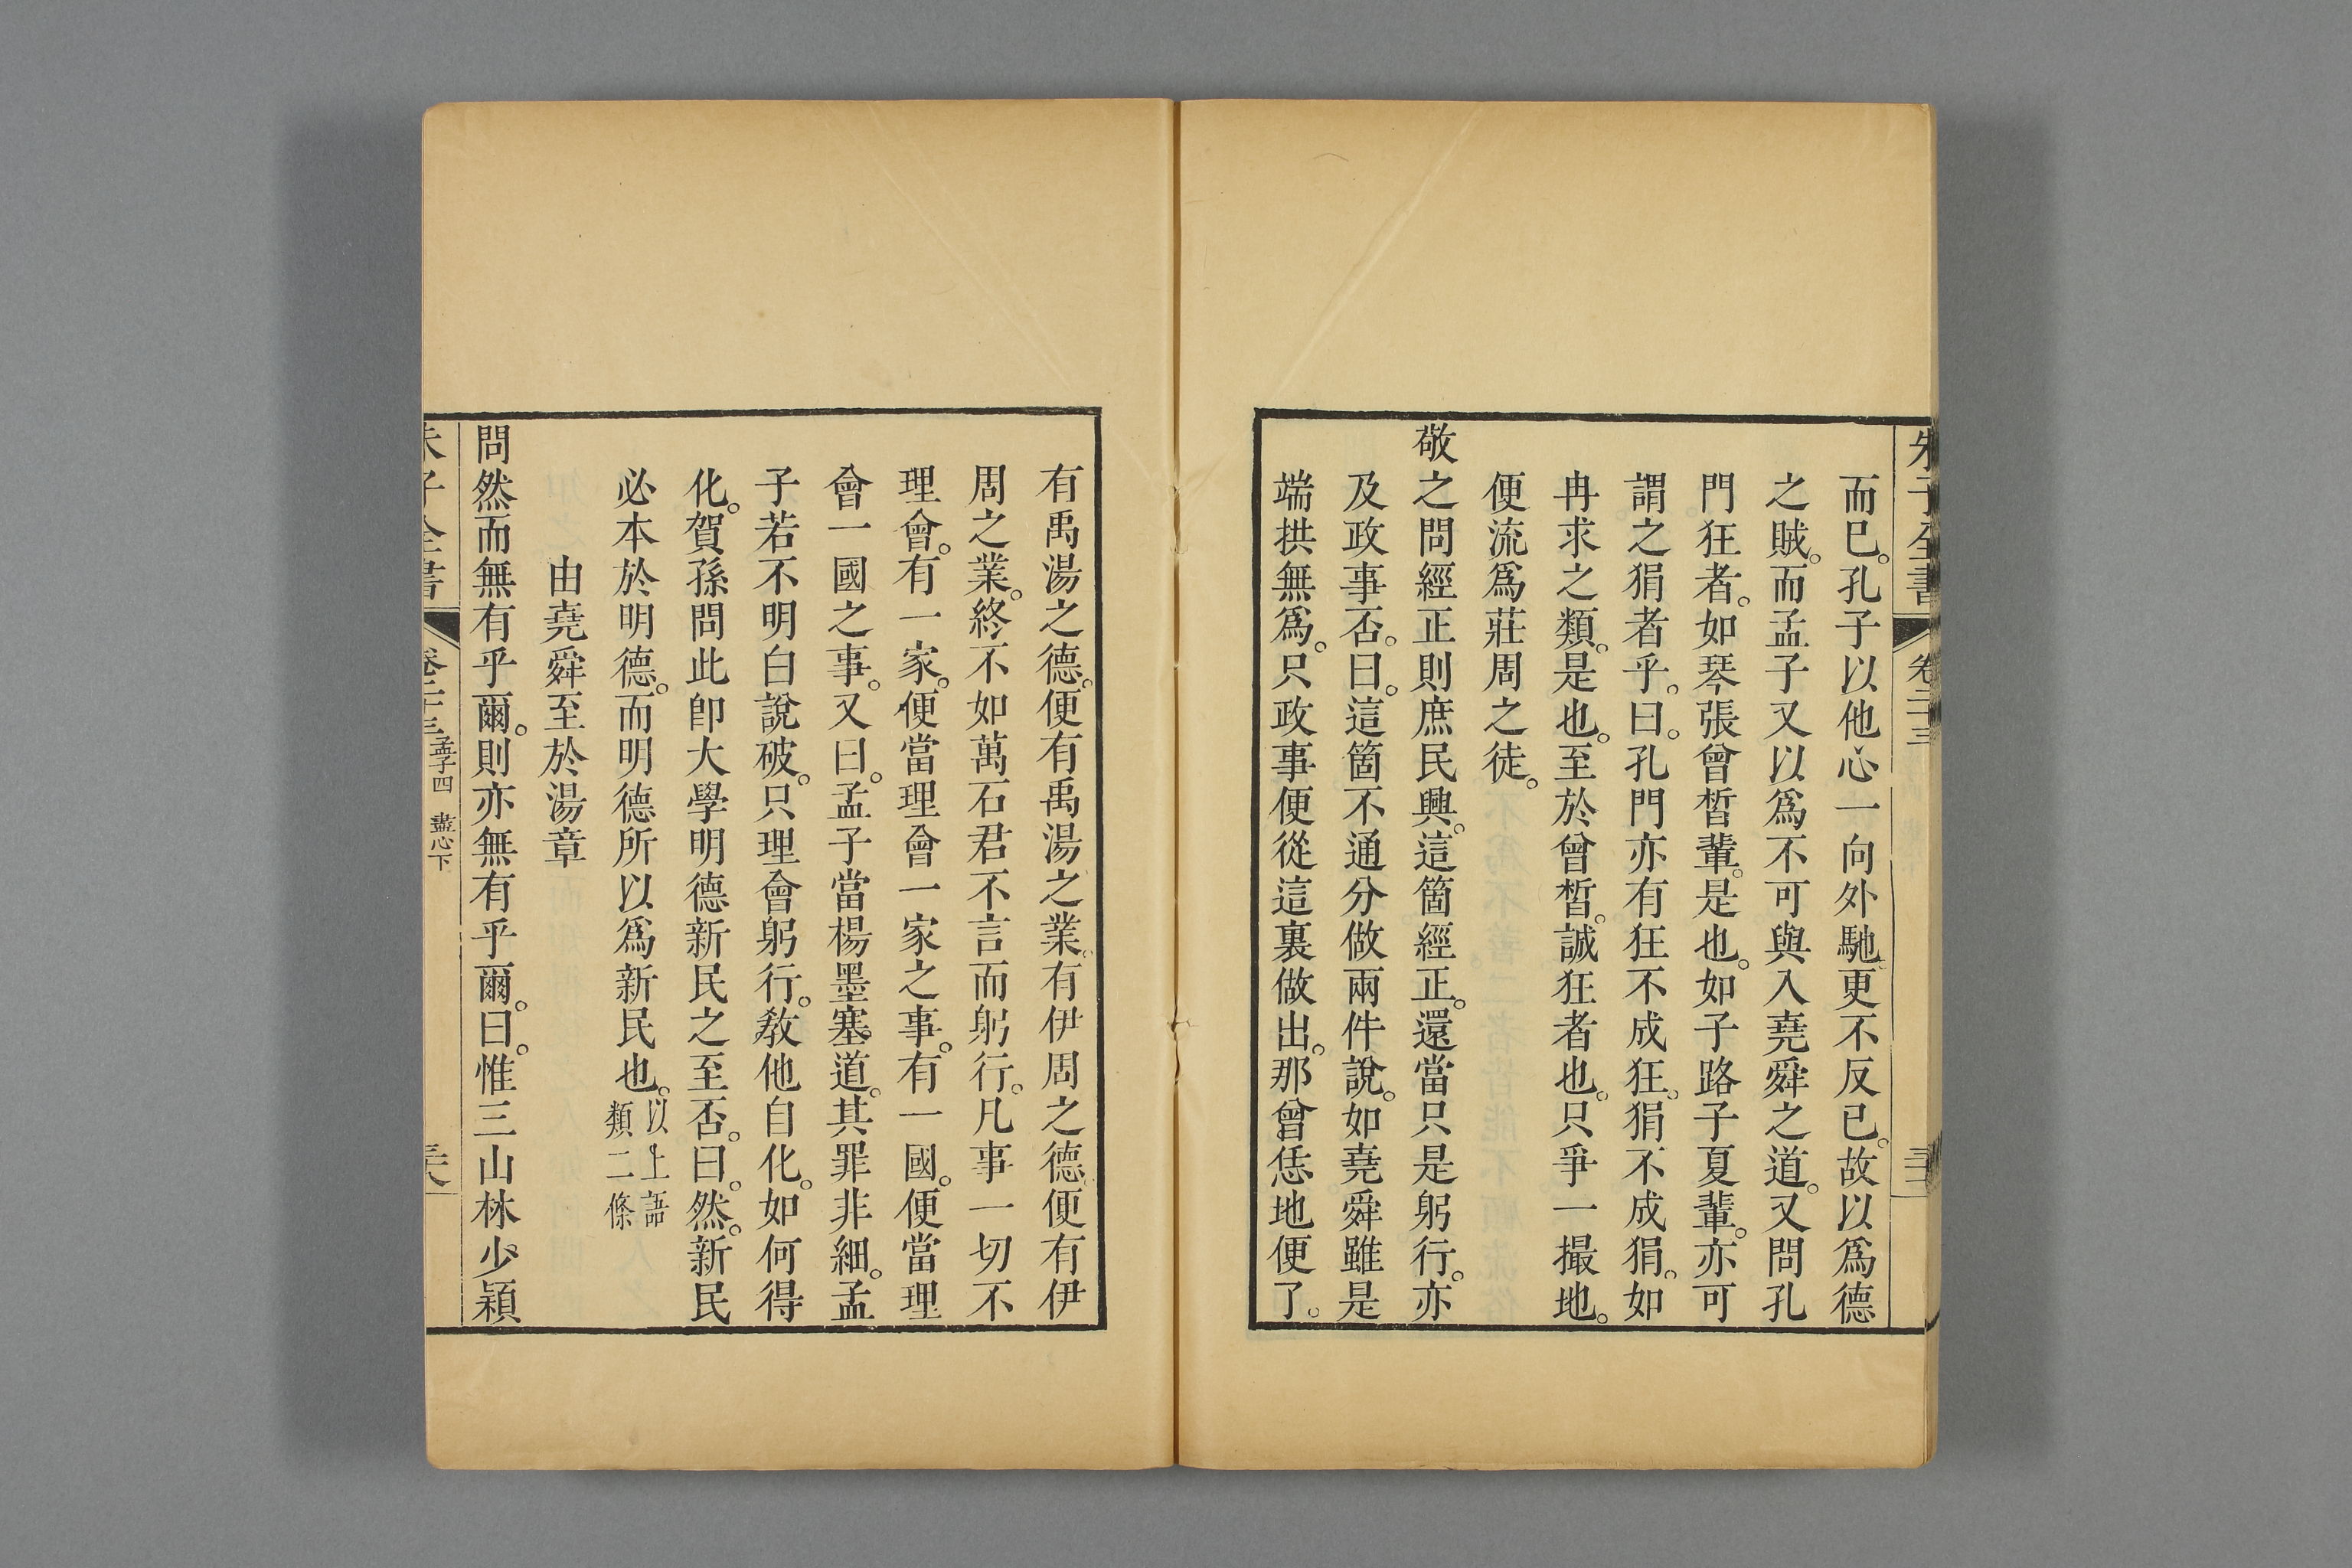 朱子全書 卷二十三
而已。孔子以他心一向外馳。更不反已。故以爲德
之賊。而孟子又以爲不可與入堯舜之道。又問孔
門狂者。如琴張曾晳輩。是也。如子路子夏輩。亦可
謂之狷者乎。曰。孔門亦有狂不成狂。狷不成狷。如
冉求之類。是也。至於曾晳。誠狂者也。只爭一撮地。
便流爲莊周之徒。
敬之問經正則庶民興。這箇經正。還當只是躬行。亦
及政事否。曰。這箇不通分做兩件說。如堯舜雖是
端拱無爲。只政事便從這裏做出。那曾恁地便了。
有禹湯之德。便有禹湯之業。有伊周之德。便有伊
周之業。終不如萬石君不言而躬行。凡事一切不
理會。有一家。便當理會一家之事。有一國。便當理
會一國之事。又曰。孟子當楊墨塞道。其罪非細。孟
子若不明白說破。只理會躬行。敎他自化。如何得
化。賀孫問此卽大學明德新民之至否。曰。然。新民
必本於明德。而明德所以爲新民也。以上語類二條
由堯舜至於湯章
問然而無有乎爾。則亦無有乎爾。曰。惟三山林少穎
朱子全書 卷二十三 孟子四 盡心下